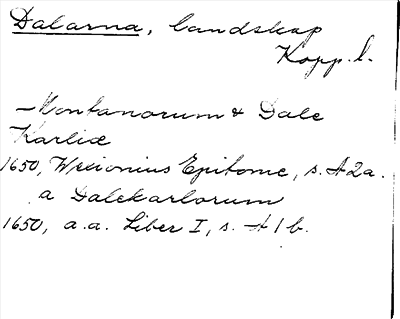 Dalarna, landskap
Kopp. l.
– Montanorum & Dale
Karliæ
1650, Wexionius Epitome, s. A2a.
a Dalekarlorum
1650, a.a. Liber I, s. A1b.